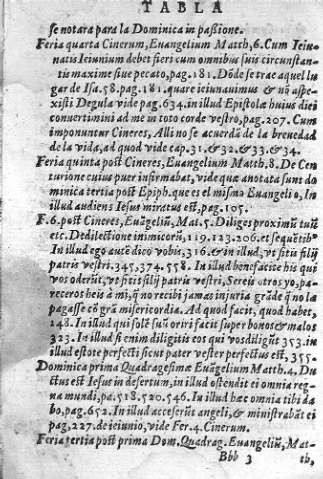 TABLA
se notara para la Dominica in passione.
Feria quarta Cinerum, Euangelium Matth, 6. Cum Ieiu-
natis Ieiunium debet fieri cum omnibus suis circunstan-
tis maxime siue pecato, pag. 181. Dõde se trae aquel lu
gar de Isa. 58. pag. 181. quare ieiunauimus & nõ aspe-
xisti Degula vide pag. 634. in illud Epistolæ huius diei
convertimini ad me in toto corde vestro, pag. 207. Cum
imponuntur Cineres, Alli no se acuerdã de la breuedad
de la vida, ad quod vide cap. 31. & 32. & 33. & 34.
Feria quinta post Cineres, Euangelium Matth. 8. De Cen
turione cuius puer infirmabat, vide quæ anotata sunt do
minica tertia post Epiph. que es el mismo Euangelio, In
illud audiens Iesus miratus est, pag. 105.
F. 6. post Cineres, Euãgeliũ, Mat. 5. Diliges proximũ tuũ
etc. De dilectione inimicorũ, 119. 123. 206. et sequẽtib⁹
In illud ego autẽ dico vobis, 316, & in illud, vt sitis filij
patris vestri. 345, 374. 558. In illud benefacite his qui
vos oderũt, vt sitis filij patris vestri, Sereis otros yo, pa-
receros heis à mi, q̃ no recibi jamas injuria grãde q̃ no la
pagasse cõ grã misericordia. Ad quod facit, quod habet,
248. In illud qui solẽ suũ oriri facit super bonos & malos
323. In illud si enim diligitis eos qui vos diligũt 353. in
illud estote perfecti sicut pater vester perfectus est, 355.
Dominica prima Quadragesimæ Euãgelium Matth. 4. Du
ctus est Iesus in desertum, in illud ostendit ei omnia reg-
na mundi, pa. 518. 520. 546. In illud hæc omnia tibi da
bo, pag. 652. In illud accesserũt angeli, & ministrabãt ei
pag, 227. de ieiunio, vide Fer. 4. Cinerum.
Feria tertia post prima Dom. Quadrag. Euangeliũ, Mat-
Bbb 3 th,